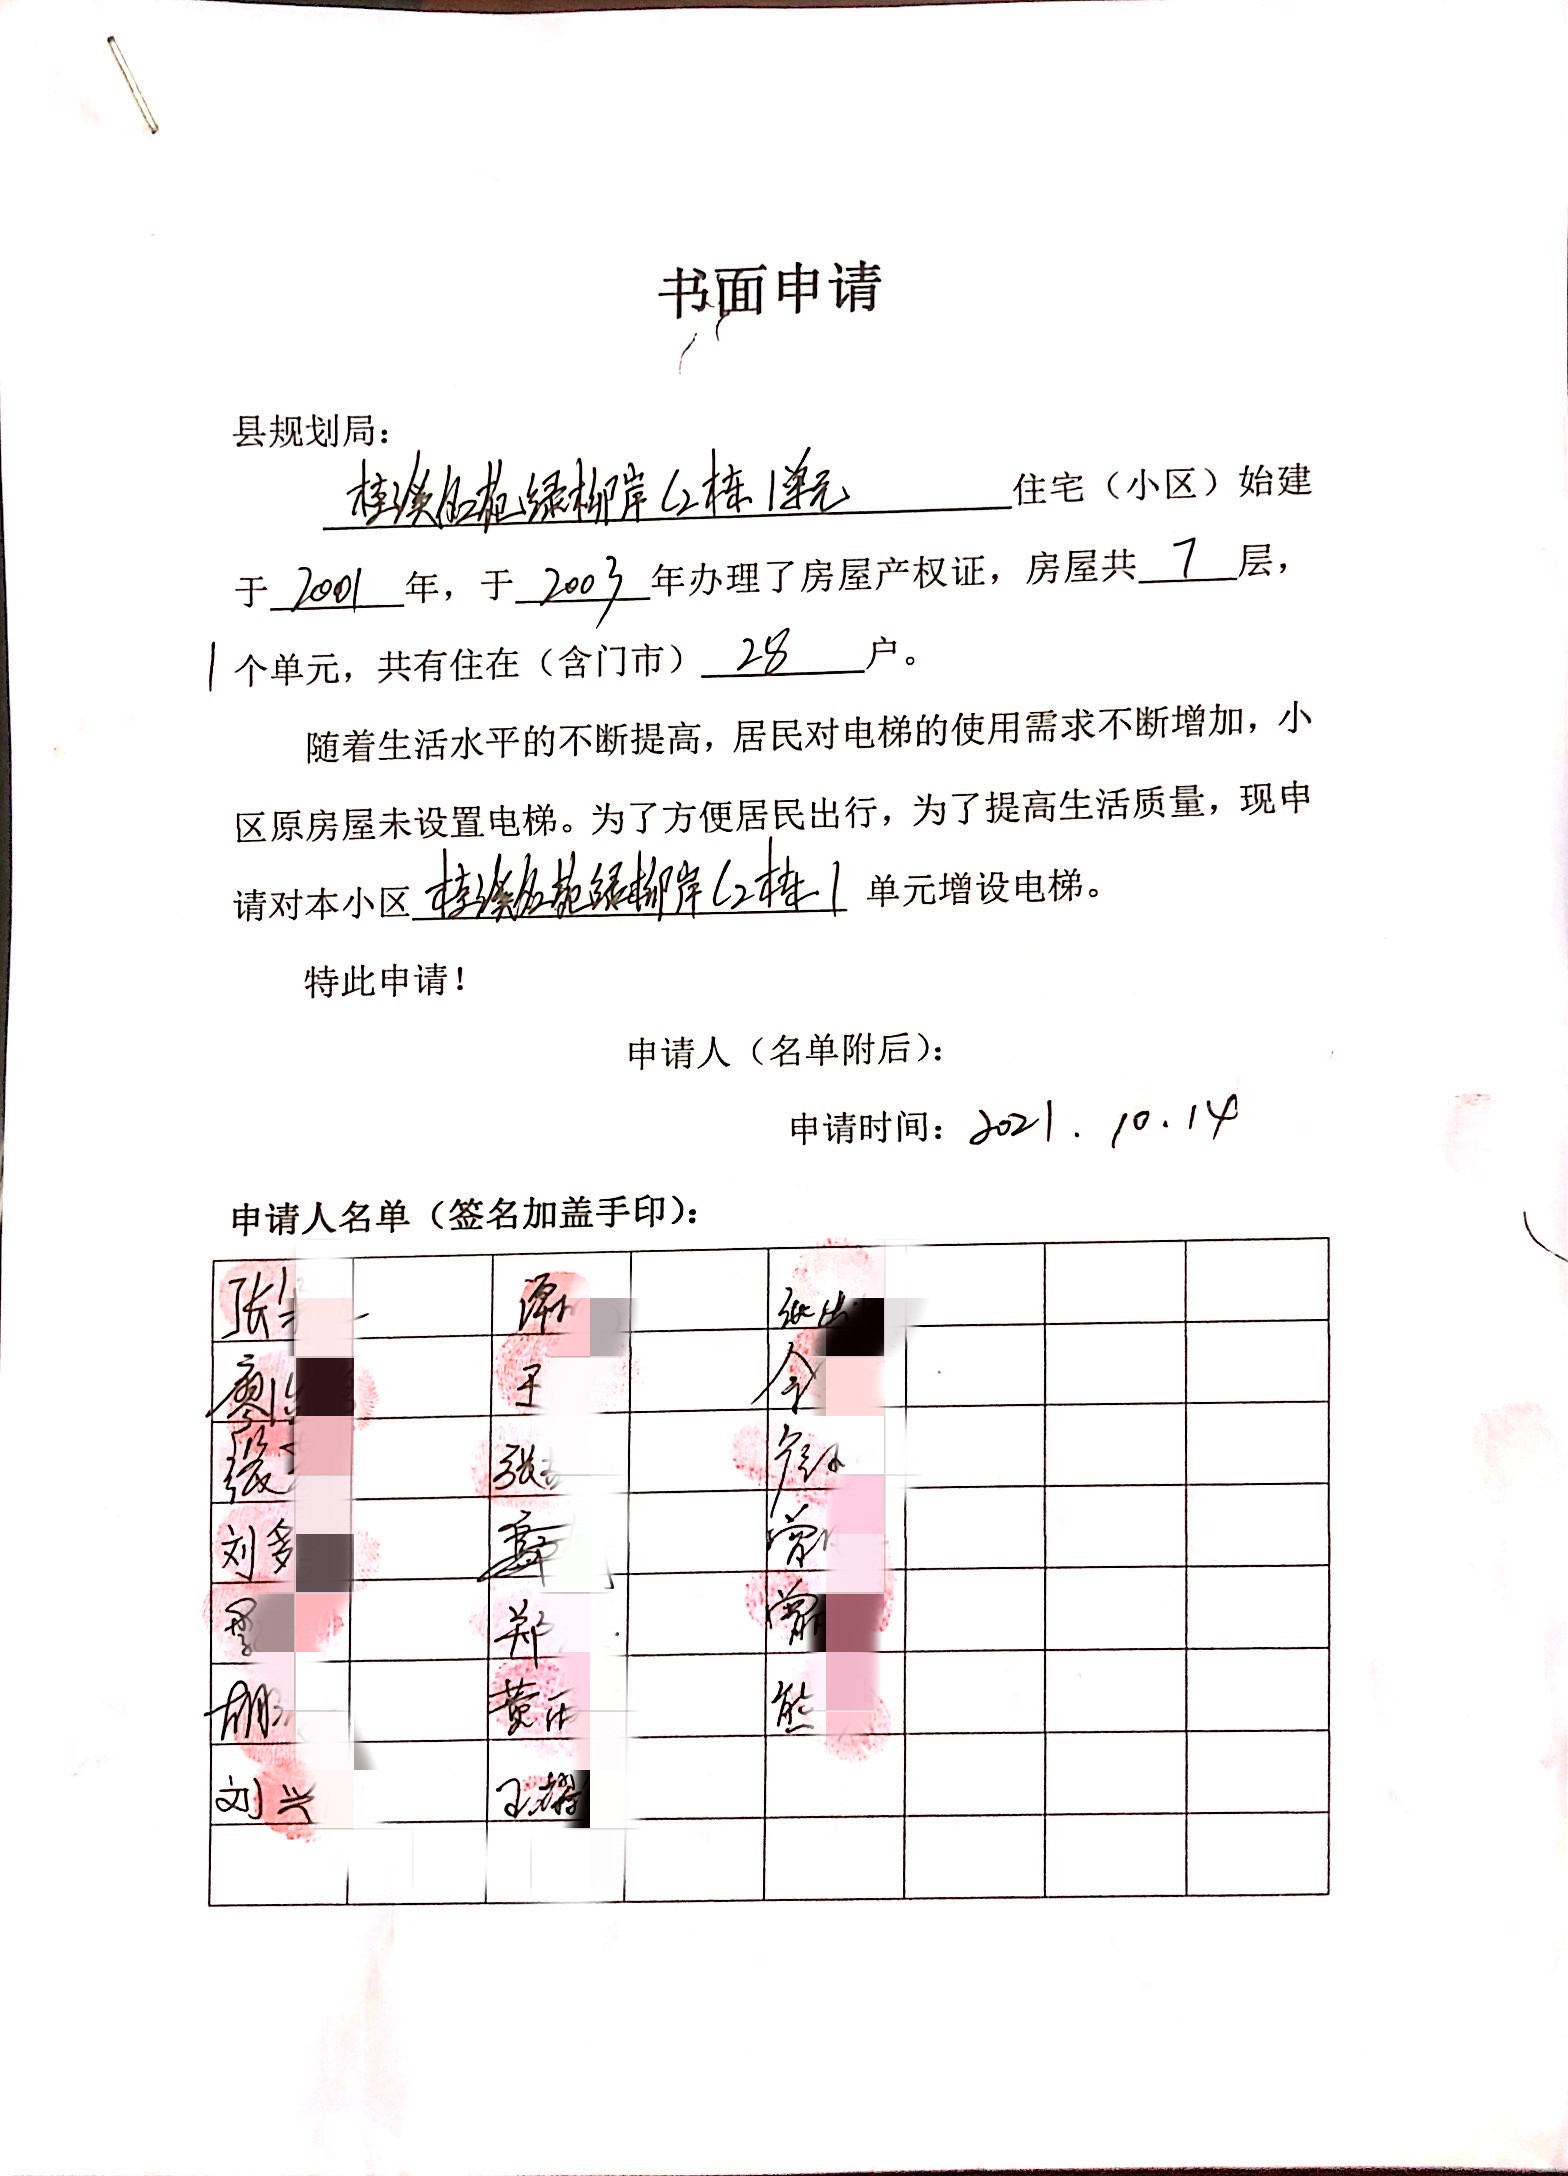 书面申请
县规划局：
桂溪名苑绿柳岸C2栋1单元住宅（小区）始建
于2001年，于2003年办理了房屋产权证，房屋共7层，
1个单元，共有住在（含门市）28户。
随着生活水平的不断提高，居民对电梯的使用需求不断增加，小
区原房屋未设置电梯。为了方便居民出行，为了提高生活质量，现申
请对本小区桂溪名苑绿柳岸C2栋1单元增设电梯。
特此申请！
申请人（名单附后）：
申请时间：2021.10.14
申请人名单（签名加盖手印）：
张 谭 张
廖 王
张 张
刘多 曾
郑
胡 黄 熊
刘兴 王